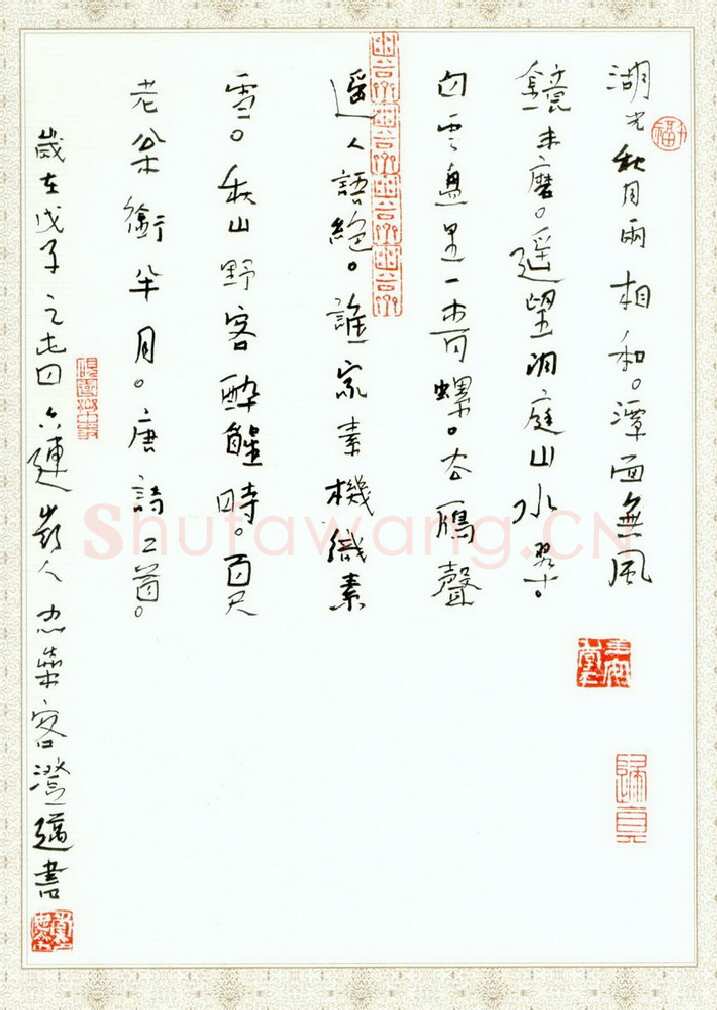 湖光秋月兩相和。潭面無風
鏡未磨。遥望洞庭山水翠。
白雲盤里一青螺。古雁聲
遥人語絕。誰家素機織素
雪。秋山野客醉醒時。百尺
老梁銜半月。唐詩二首。
歲在戊子之
人 客澄邁書
福
Shufawang.CN